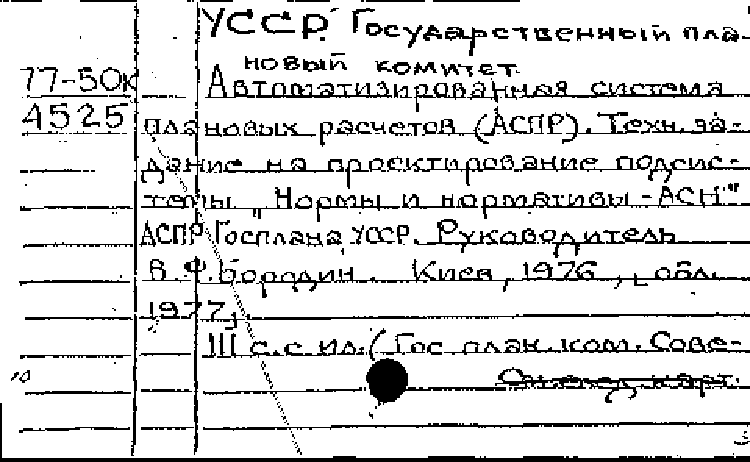 УССР. Государственный пла-
новый комитет.
77-50к Автоматизированная система
4525 плановых расчетов (АСПР). Техн. за-
дание на проектирование подсис-
темы „Нормы и нормативы-АСН"
АСПР Госплана УССР. Руководитель
В.Ф. Бородин. Киев, 1976, обл.
1977,
III с. с ил. (Гос план. ком. Сове-
карт.